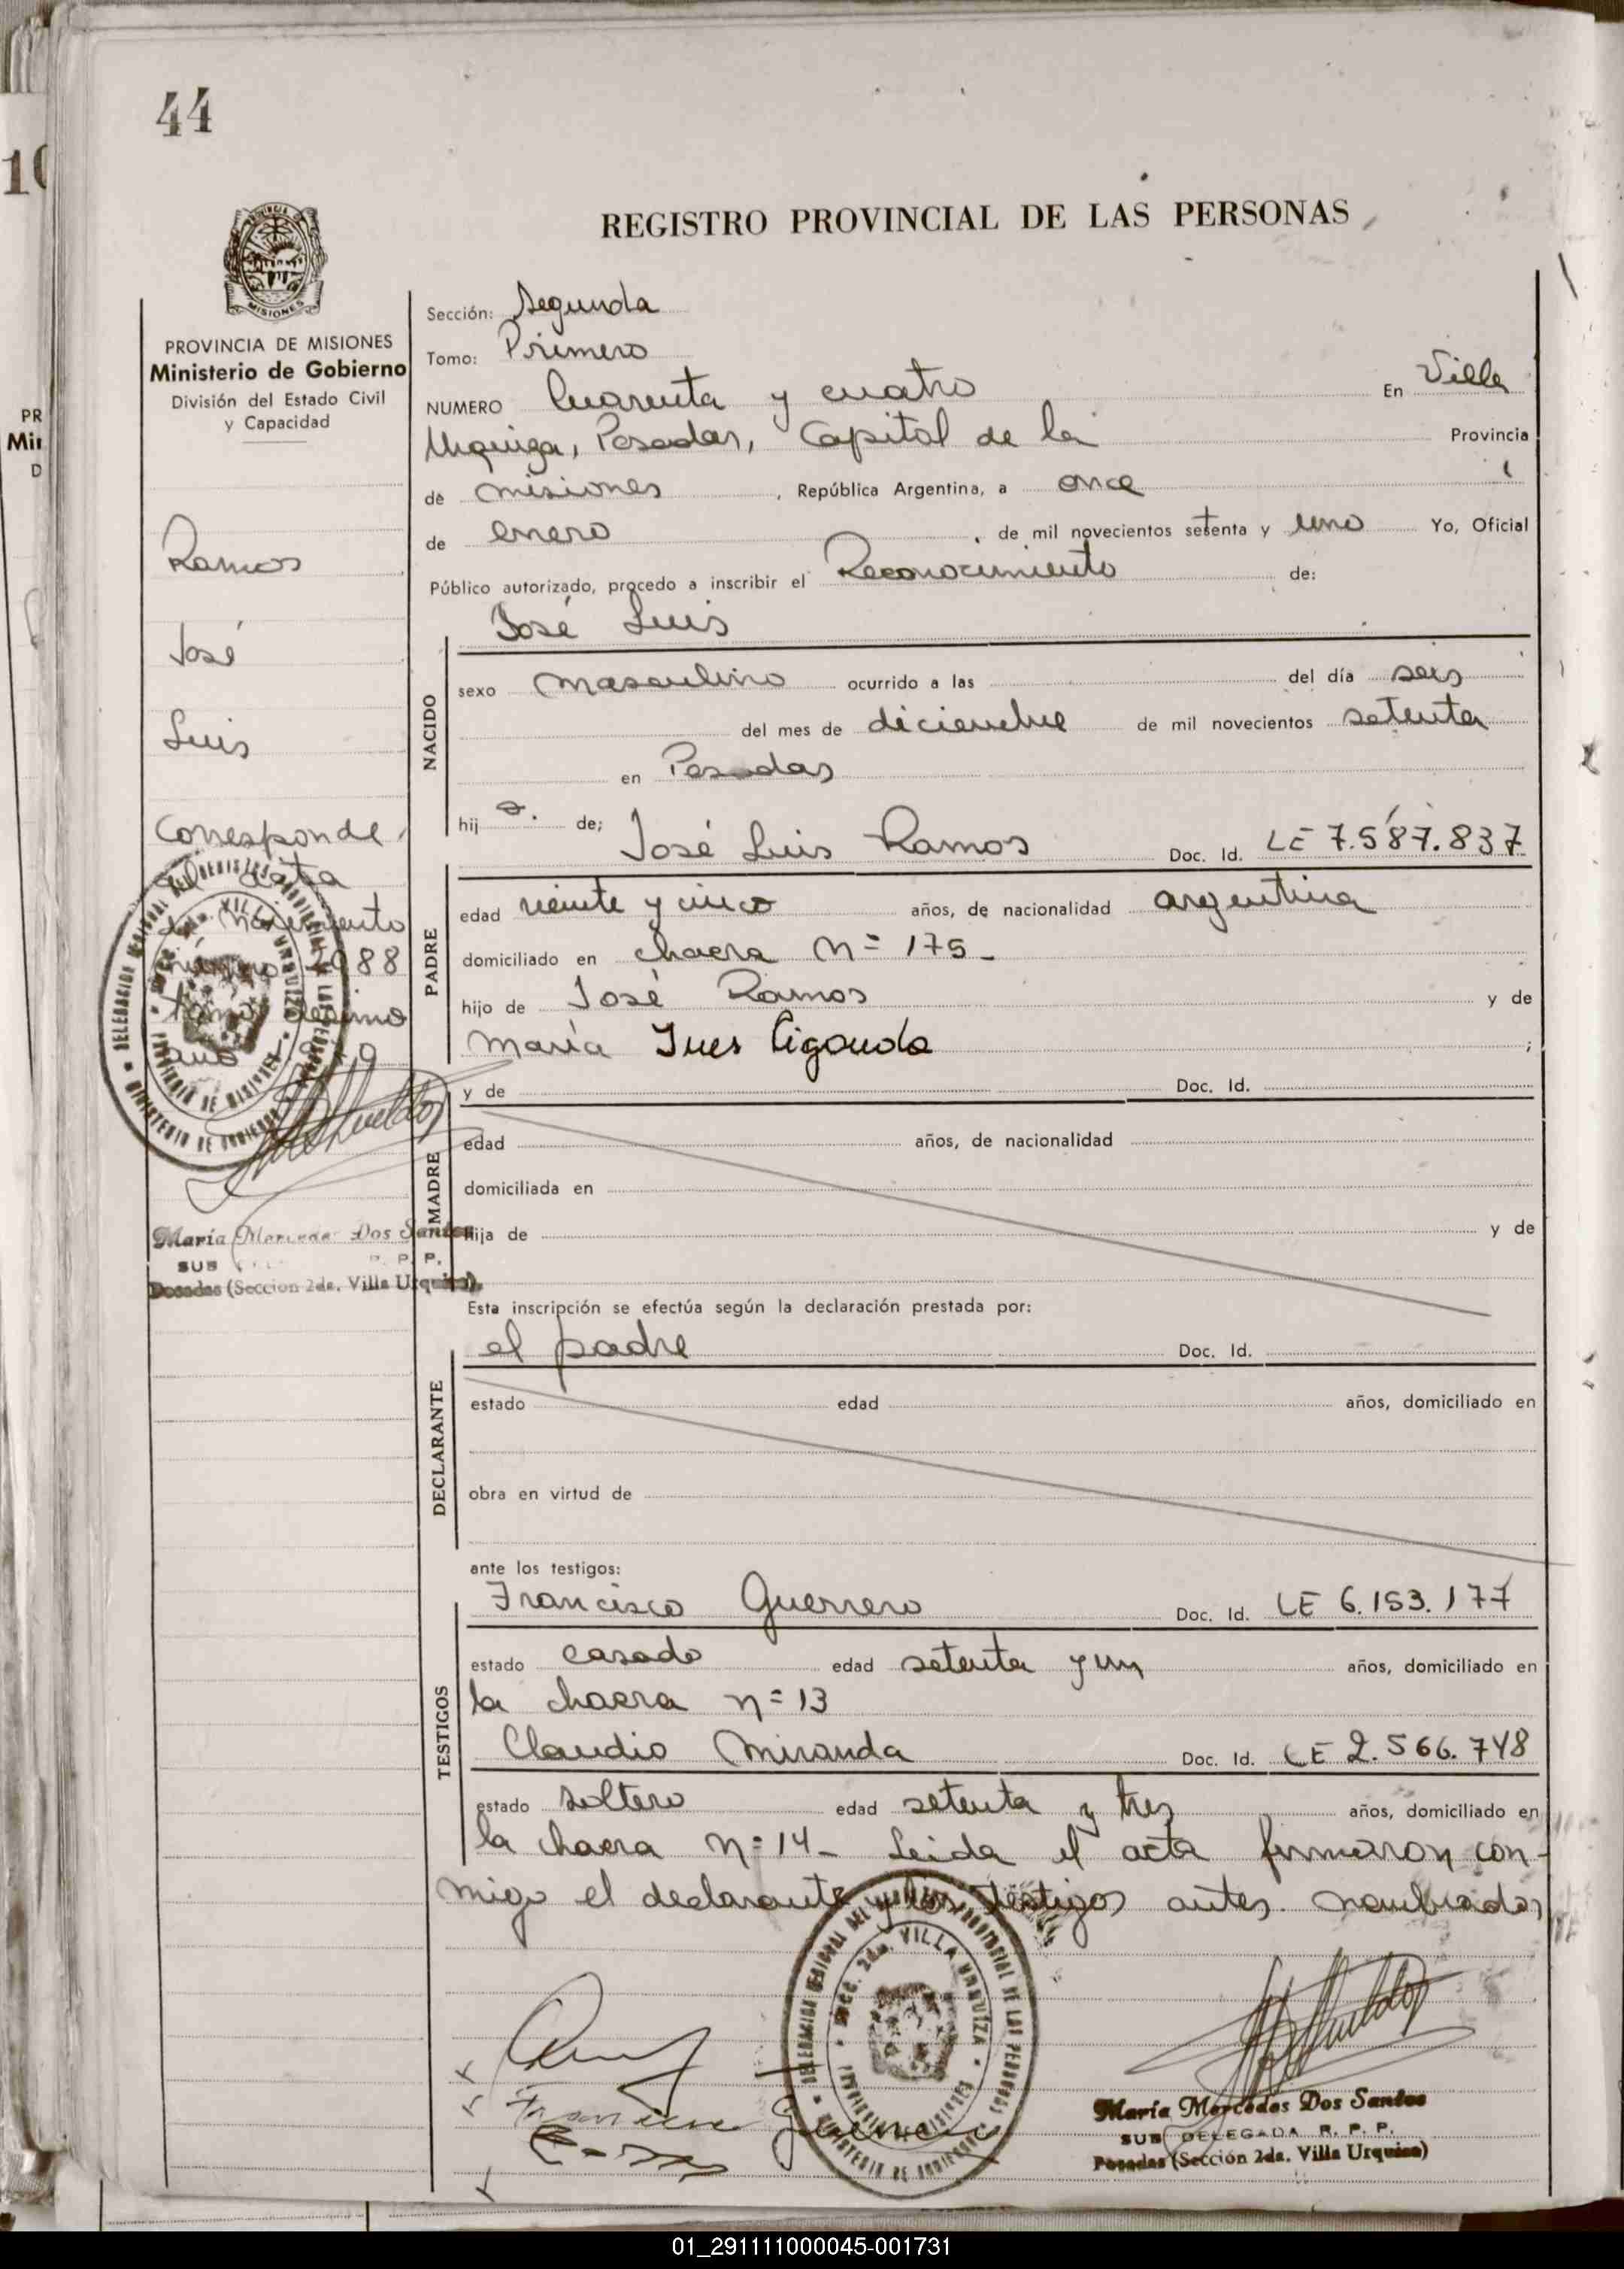 44
REGISTRO PROVINCIAL DE LAS PERSONAS
MISIONES
PROVINCIA DE MISIONES
Ministerio de Gobierno
División del Estado Civil
y Capacidad
Ramos
José
Luis
Corresponde
al acta
de nacimiento
número 2088
tomo decimo
año
María Mercedes Dos Santos
SUB R. P. P.
Posadas (Sección 2da. Villa Urquiza)
Sección: Segunda
Tomo: Primero
NUMERO Cuarenta y cuatro En Villa
Urquiza, Posadas, Capital de la Provincia
de misiones , República Argentina, a once
de enero , de mil novecientos setenta y uno Yo, Oficial
Público autorizado, procedo a inscribir el Reconocimiento de:
José Luis
NACIDO
sexo masculino ocurrido a las del día seis
del mes de diciembre de mil novecientos setenta
en Posadas
hij o. de; José Luis Ramos Doc. Id. LE 7.587.837
PADRE
edad veinte y cinco años, de nacionalidad argentina
domiciliado en chacra Nº 175-
hijo de José Ramos y de
María Ines Cigonda ;
y de Doc. Id.
MADRE
edad años, de nacionalidad
domiciliada en
hija de y de
Esta inscripción se efectúa según la declaración prestada por:
el padre Doc. Id.
DECLARANTE
estado edad años, domiciliado en
obra en virtud de
ante los testigos:
Francisco Guerrero Doc. Id. LE 6.153.177
TESTIGOS
estado casado edad setenta y un años, domiciliado en
la chacra nº 13
Claudio Miranda Doc. Id. LE 2.566.748
estado soltero edad setenta y tres años, domiciliado en
la chacra Nº 14- Leida el acta firmaron con-
migo el declarante y los testigos antes nombrados
María Mercedes Dos Santos
SUB DELEGADA R. P. P.
Posadas (Sección 2da. Villa Urquiza)
01_291111000045-001731